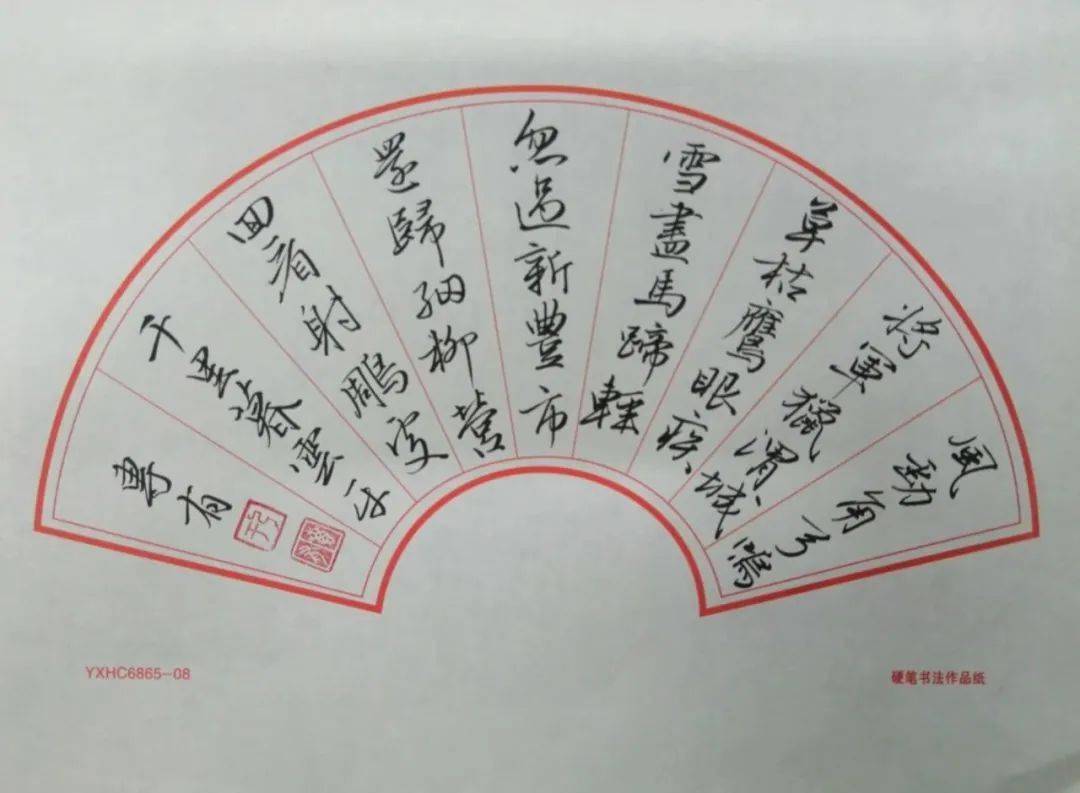 風勁角弓鳴
將軍獵渭城
草枯鷹眼疾
雪盡馬蹄輕
忽過新豐市
還歸細柳營
回看射鵰處
千里暮雲平
有
YXHC6865-08
硬笔书法作品纸